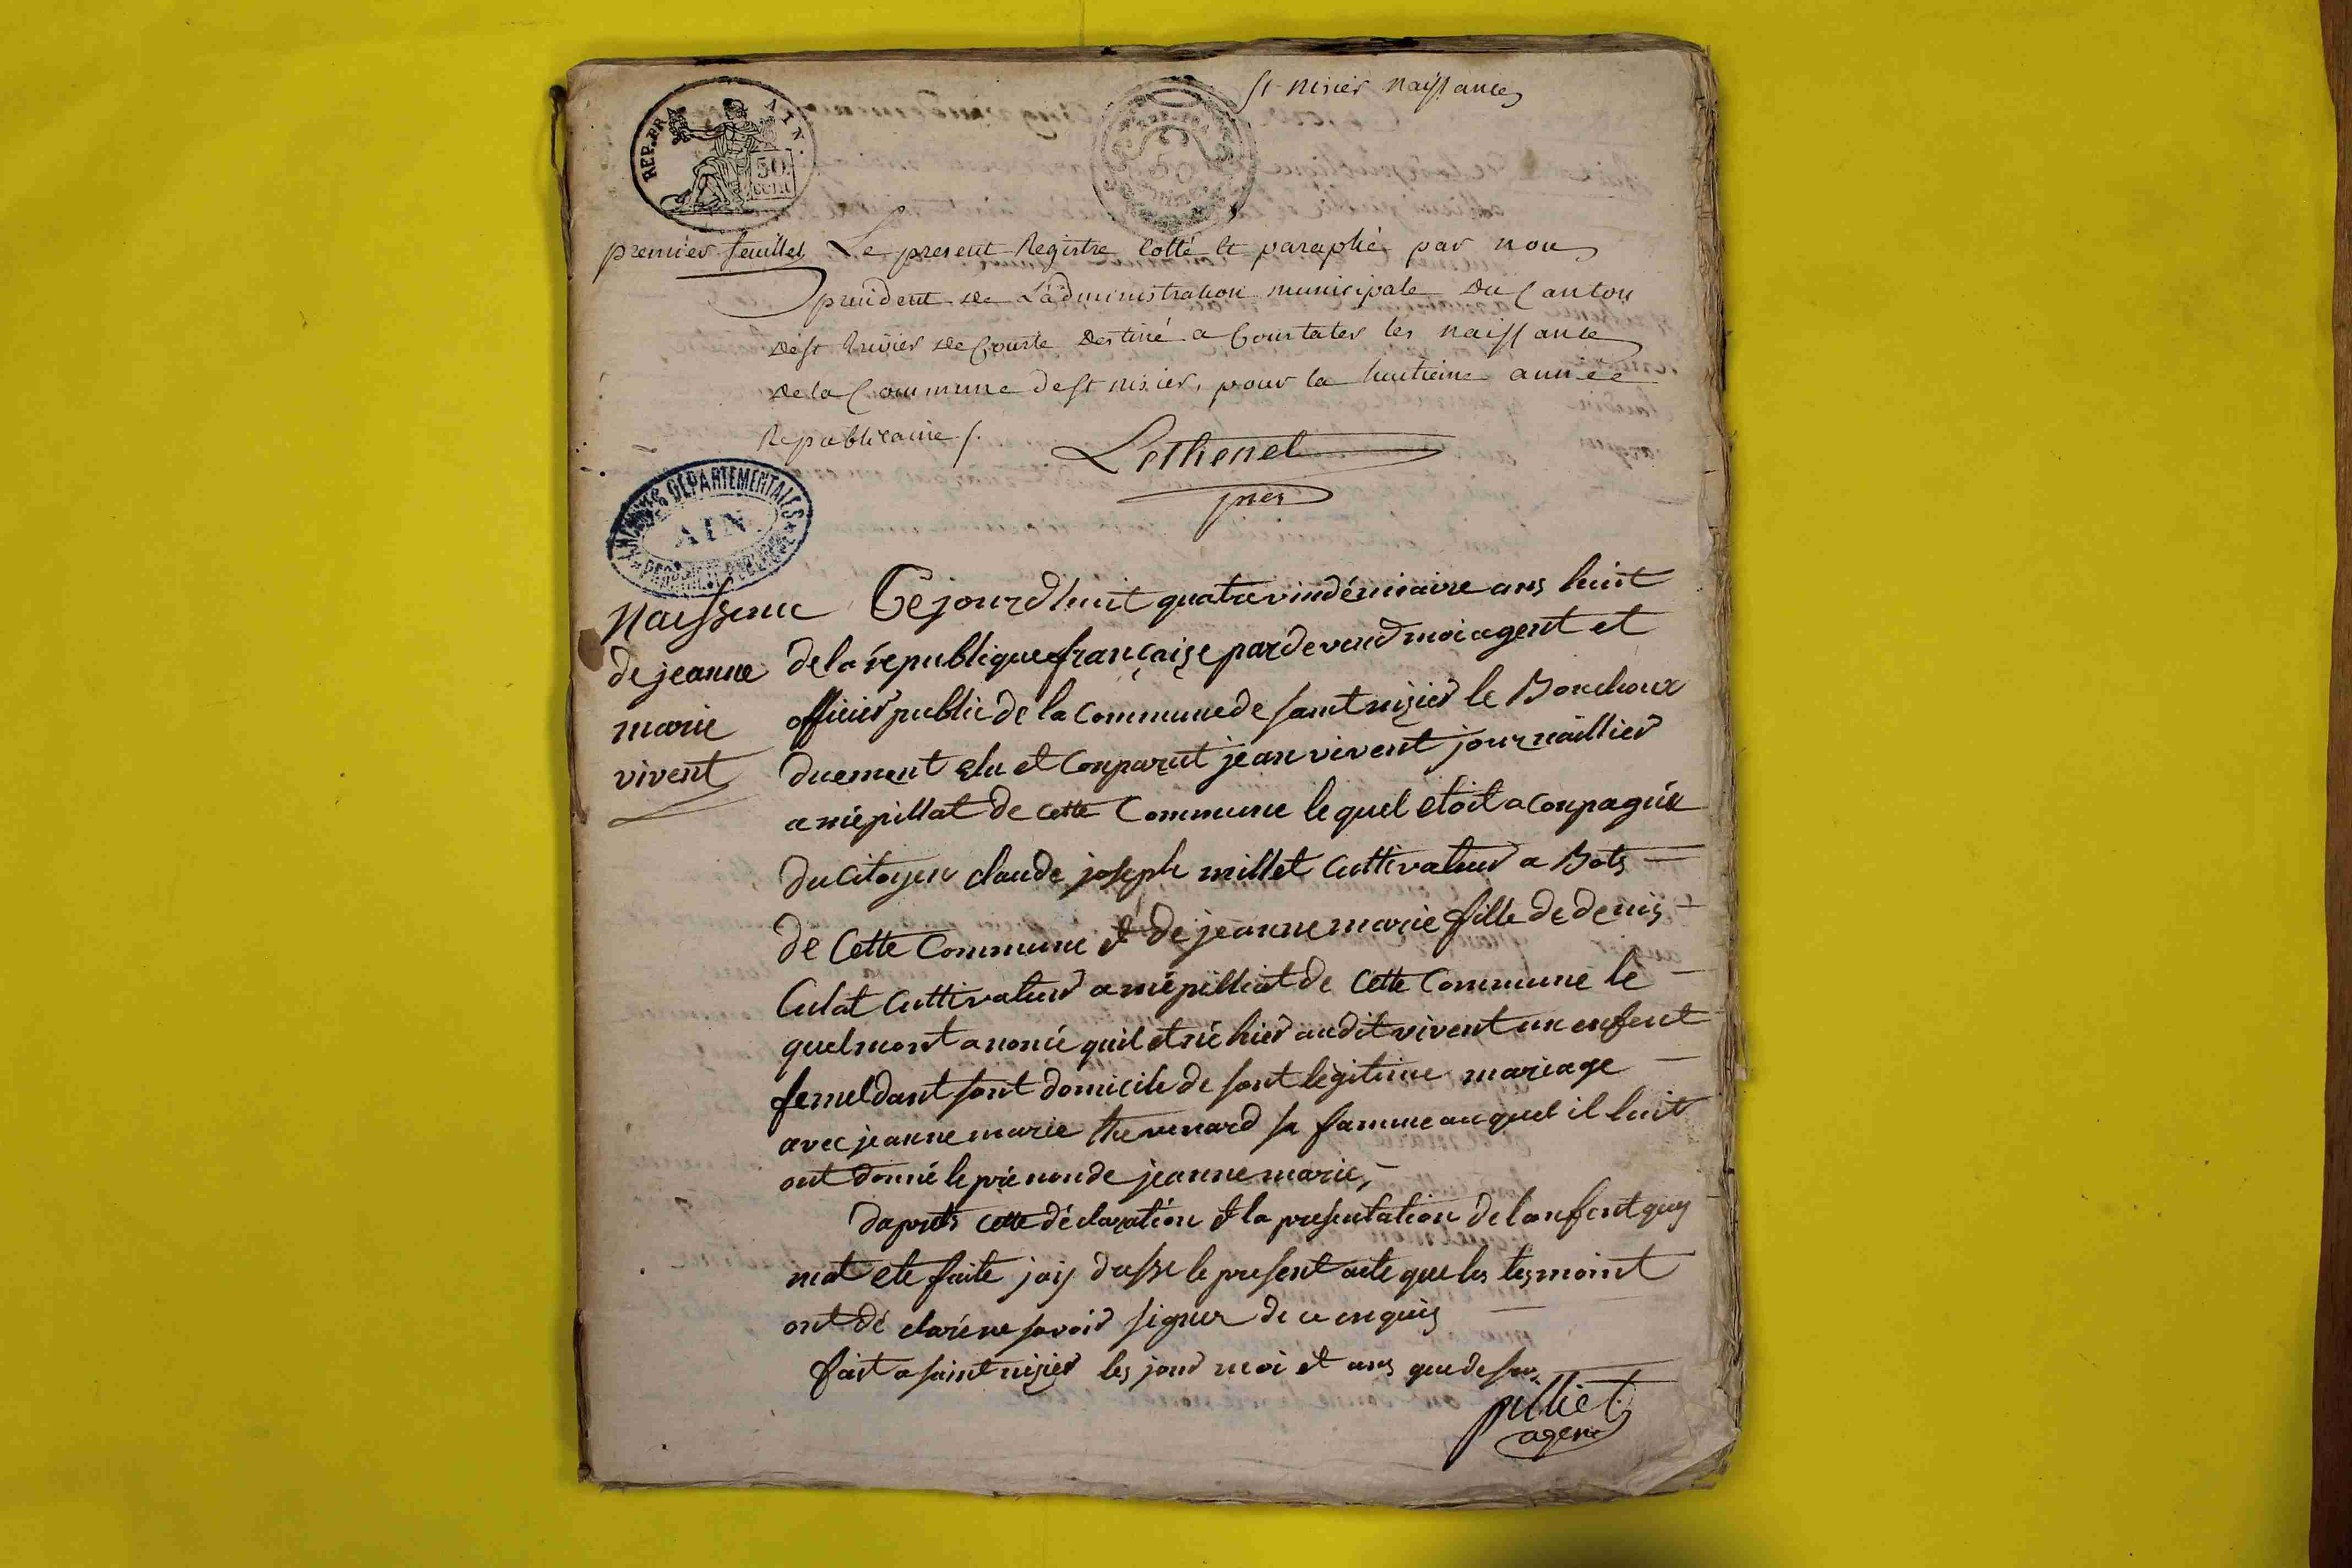 St nisier naissances
REP. FRA
50
cent
premier feuillet
Le present Registre Cotté et paraphé par nous
president de L'administration municipale du Canton
de St trivier de Courte destiné a Constater les naissance
de la Commune de St nisier, pour la huitieme année
Republicaine /.
Lethenet
pres
ARCHIVES DEPARTEMENTALES
AIN
PROPRIETE PUBLIQUE
naissence
de jeanne
marie
vivent
Cejourdhuit quatre vindémiaire ans huit
de la république française pardevend moi agent et
officier public de la commune de saint nizier le Bouchoux
duement elu et Conparut jean vivent journaillier
a mépillat de cette Commune lequel etoit aconpagné
du citoyen claude joseph millet cultivateur a Bots
de Cette Commune et de jeanne marie fille de denis
Culat cultivateur a mépilliat de Cette Commune le
quel mont anoncé quil et né hier audit vivent un enfent
femel dant sont domicile de sont légitime mariage
avec jeanne marie thevenard sa famme auquel il luit
ont donné le prénon de jeanne marie,
daprets cette déclaration et la presentation de lenfent quy
mat ete faite jaij dresse le present acte que les tesmoint
ont déclaré ne savoir signer de ce enquis
fait a saint nizier les jour moi et ans que desus,
pilliet
agent